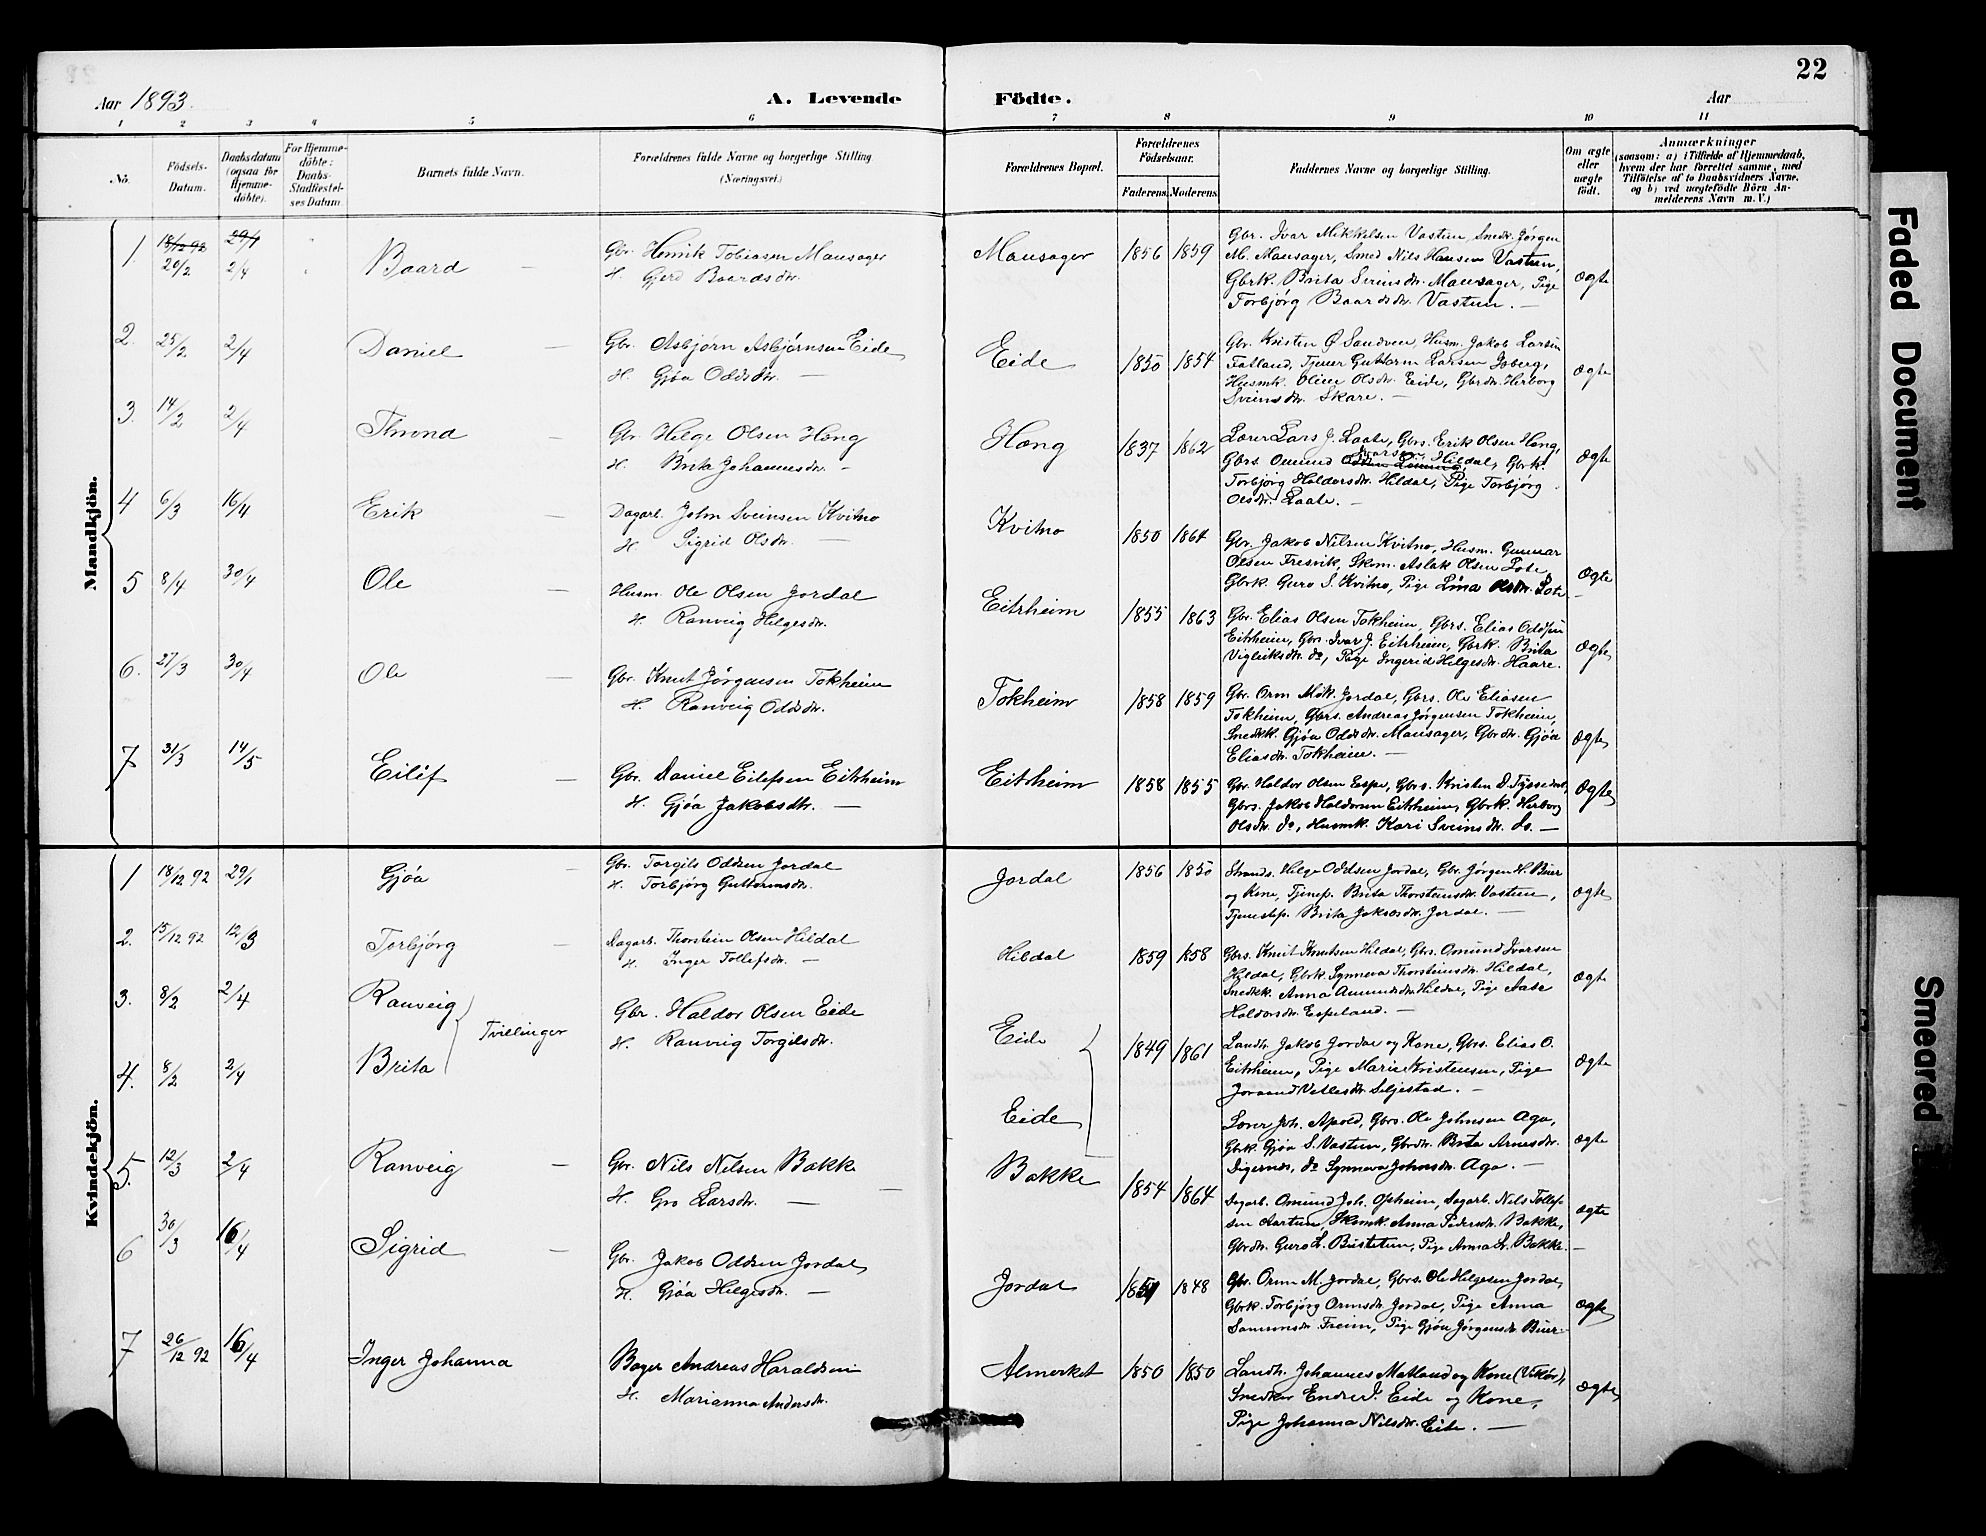 22
Aar 1893.
A. Levende Födte.
Aar
1 2 3 4 5 6 7 8 9 10 11
No.
Födsels-Datum.
Daabsdatum (ogsaa for Hjemme-döbte).
For Hjemme-döbte: Daabs-Stadfæstel-ses Datum
Barnets fulde Navn.
Forældrenes fulde Navne og borgerlige Stilling (Næringsvei.)
Forældrenes Bopæl.
Forældrenes Födselsaar.
Faderens. Moderens.
Faddernes Navne og borgerlige Stilling.
Om ægte eller uægte födt.
Anmærkninger
(saasom: a) i Tilfælde af Hjemmedaab,
hvem der har forrettet samme, med
Tilföielse af to Daabsvidners Navne,
og b) ved uægtefödte Börn An-
melderens Navn m. V.)
Mandkjön.
1 18/12 92 29/1
20/2 2/4 Baard
Gbr. Henrik Tobiasen Mausager
H. Gjerd Baardsdtr.
Mausager 1856 1859
Gbr. Ivar Mikkelsen Vastun, Smed. Jörgen
M. Mausager, Smed Nils Hansen Vastun,
Gbrk. Brita Sveinsdtr. Mausager, Pige
Torbjörg Baardsdtr. Vastun. —
ægte
2. 25/2 2/4 Daniel
Gbr. Asbjørn Asbjørnsen Eide
H. Gjøa Oddsdtr. —
Eide 1850 1854
Gbr. Kristen Ø. Sandven, Husm. Jakob Larsen
Fatland, Tjener Guttorm Larsen Joberg,
Husmk. Oline Olsdtr. Eide, Gbrdtr. Herborg
Sveinsdtr. Skare. —
ægte
3. 14/2 2/4 Thrond
Gbr. Helge Olsen Hæng
H. Brita Johannesdtr. —
Hæng 1837 1862
Lærer Lars J. Laate, Gbrs. Erik Olsen Hæng,
Gbrs. Omund Ivarsen Hildal, Gbrk.
Torbjørg Haldorsdtr. Hildal, Pige Torbjørg
Olsdtr. Laate. —
ægte
4 6/3 16/4 Erik
Dagarb. John Sveinsen Kvitno
H. Sigrid Olsdtr. —
Kvitno 1850 1864
Gbr. Jakob Nilsen Kvitno, Husm. Gunnar
Olsen Fresvik, Skom. Aslak Olsen Lote,
Gbrk. Guro S. Kvitno, Pige Lina Olsdtr. Lote
ægte
5 8/4 30/4 Ole
Husm. Ole Olsen Jordal
H. Ranveig Helgesdtr.
Eitrheim 1855 1863
Gbr. Elias Olsen Tokheim, Gbrs. Elias Oddsen
Eitrheim, Gbr. Ivar J. Eitrheim, Gbrk. Brita
Vigleiksdtr. do, Pige Ingerid Helgesdtr. Haare.
ægte
6. 27/3 30/4 Ole
Gbr. Knut Jørgensen Tokheim
H. Ranveig Oddsdtr.
Tokheim 1858 1859
Gbr. Orm Mik. Jordal, Gbrs. Ole Eliasen
Tokheim, Gbrs. Andreas Jørgensen Tokheim,
Snedkk. Gjøa Oddsdtr. Mausager, Gbrdtr. Gjøa
Eliasdtr. Tokheim. —
ægte
7 31/3 14/5 Eilif
Gbr. Daniel Eilefsen Eitrheim
H. Gjøa Jakobsdtr. —
Eitrheim 1858 1855
Gbr. Haldor Olsen Espe, Gbrs. Kristen D. Tyssedal,
Gbrs. Jakob Haldorsen Eitrheim, Gbrk. Herborg
Olsdtr. do, Husmk. Kari Sveinsdtr. do. —
ægte
Kvindekjön.
1 18/12 92 29/1 Gjøa
Gbr. Torgils Oddsen Jordal
H. Torbjørg Guttormsdtr.
Jordal 1856 1850
Strands. Helge Oddsen Jordal, Gbr. Jørgen H. Buer
og Kone, Tjenep. Brita Thorsteinsdtr. Vastun,
Tjenestep. Brita Jakobsdtr. Jordal. —
ægte
2. 15/12 92 12/3 Torbjørg
Dagarb. Thorstein Olsen Hildal
H. Inger Tollefsdtr. —
Hildal 1859 1858
Gbrs. Knut Knutsen Hildal, Gbrs. Omund Ivarsen
Hildal, Gbrk. Synneva Thorsteinsdtr. Hildal,
Snedkk. Anna Amundsdtr. Hildal, Pige Aase
Haldorsdtr. Espeland. —
ægte
3. 8/2 2/4 Ranveig
Tvillinger
Gbr. Haldor Olsen Eide
H. Ranveig Torgilsdtr.
Eide 1849 1861
Landh. Jakob Jordal og Kone, Gbrs. Elias O.
Eitrheim, Pige Marie Kristensen, Pige
Joraand Vetlesdtr. Seljestad. —
ægte
4. 8/2 2/4 Brita
Eide
Lærer Joh. Apold, Gbrs. Ole Johnsen Aga,
Gbrk. Gjøa S. Vastun, Gbrdtr. Brita Arnesdtr.
Digernes, do Synneva Johnsdtr. Aga. —
ægte
5. 12/3 2/4 Ranveig
Gbr. Nils Nilsen Bakke
H. Gro Larsdtr. —
Bakke 1854 1864
Dagarb. Omund Joh. Opheim, Dagarb. Nils Tollef-
sen Aartun, Skomk. Anna Pedersdtr. Bakke,
Gbrdtr. Guro L. Bustetun, Pige Anna L. Bakke.
ægte
6 30/3 16/4 Sigrid
Gbr. Jakob Oddsen Jordal
H. Gjøa Helgesdtr. —
Jordal 1848
Gbr. Orm M. Jordal, Gbrs. Ole Helgesen Jordal,
Gbrk. Torbjörg Ormsdtr. Jordal, Pige Anna
Samunsdtr. Freim, Pige Gjøa Jørgensdtr. Buer.
ægte
7 26/12 92 16/4 Inger Johanna
Bager Andreas Haraldsen
H. Marianna Andersdtr.
Almerket 1850 1850
Landh. Johannes Matland og Kone (Vikör),
Snedker Endre J. Eide og Kone,
Pige Johanna Nilsdtr. Eide. —
ægte
Faded Document
Smeared